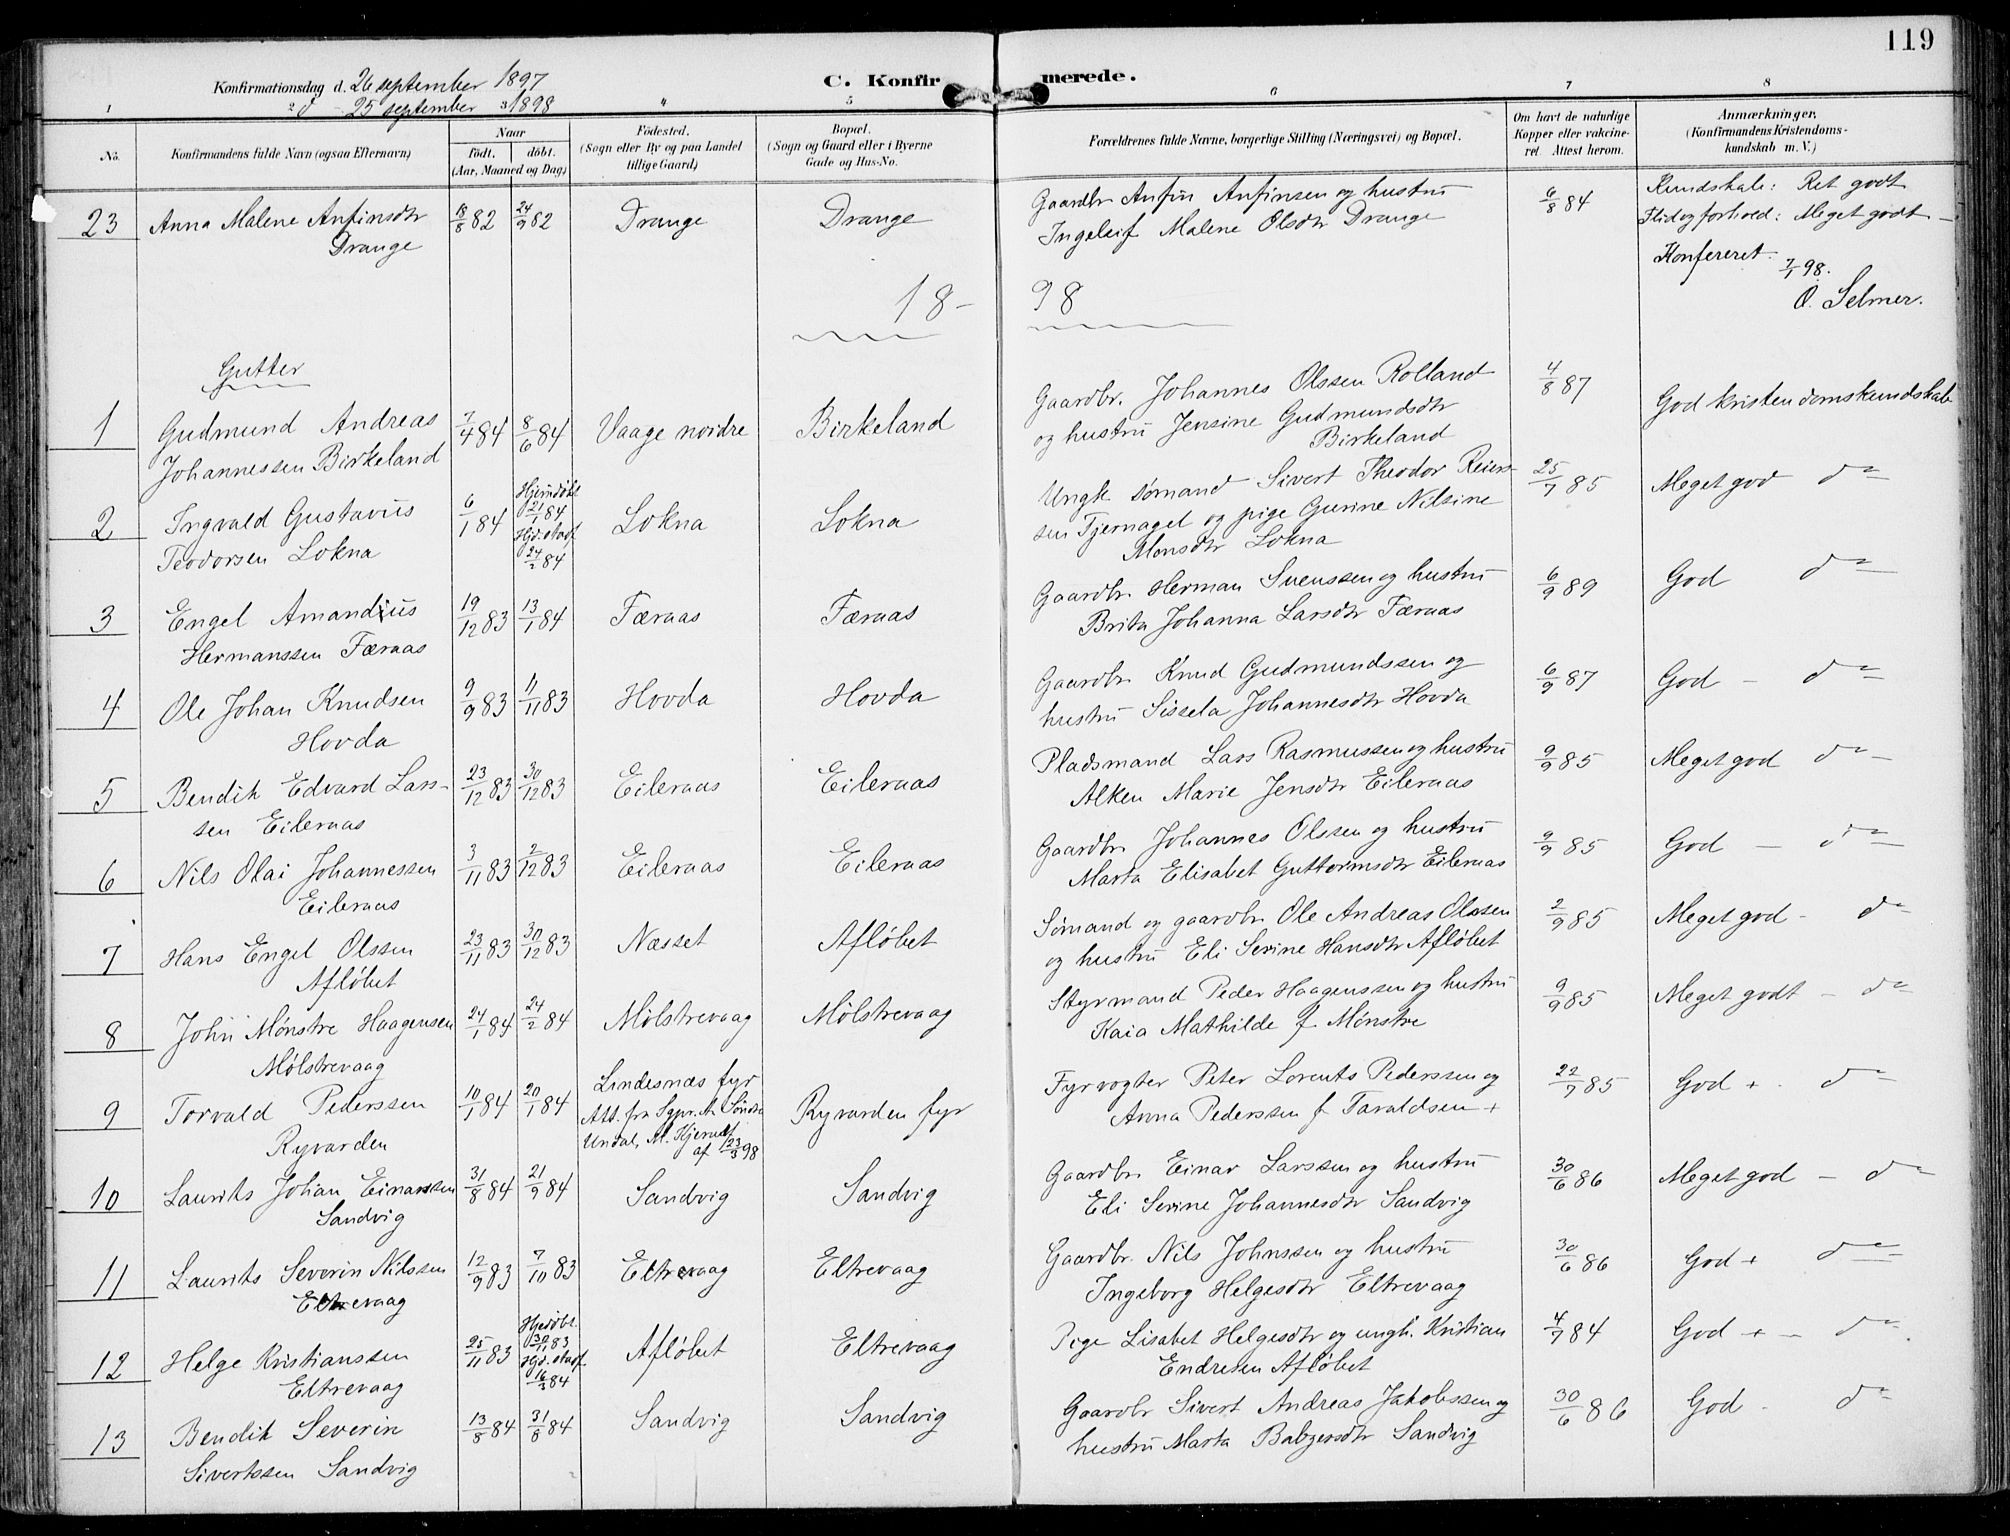 119
Konfirmationsdag d. 26 september 1897
d 25 september 1898
C. Konfirmerede.
1 2 3 4 5 6 7 8
No.
Konfirmandens fulde Navn (ogsaa Efternavn)
Naar
født. døbt.
(Aar, Maaned og Dag)
Fødested.
(Sogn eller By og paa Landet
tillige Gaard)
Bopæl.
(Sogn og Gaard eller i Byerne
Gade og Hus-No.
Forældrenes fulde Navne, borgerlige Stilling (Næringsvei) og Bopæl.
Om havt de naturlige
Kopper eller vakcine-
ret. Attest herom.
Anmærkninger.
(Konfirmandens Kristendoms-
kundskab m. V.)
23 Anna Malene Anfinsdtr 18/8 82 24/9 82 Drange Drange Gaardbr Anfin Anfinsen og hustru 6/8 84 Kundskab: Ret godt
Drange Ingeleif Malene Olsdtr Drange Flid og forhold: Meget godt -
Konfereret.
7/1 98.
O. Selmer.
18- 98
Gutter
1 Gudmund Andreas 7/4 84 8/6 84 Vaage nordre Birkeland Gaardbr. Johannes Olssen Rolland 4/8 87 God kristendomskundskab
Johannessen Birkeland og hustru Jensine Gudmundsdtr
Birkeland
2 Ingvald Gustavus 6/1 84 Hjemdøbt 21/1 84 Lokna Lokna Ungk. sømand Sivert Theodor Reiers- 25/7 85 Meget god do
Teodorsen Lokna Hjd. stadf. 24/2 84 sen Tjernagel og pige Gurine Nilsine
Monsdtr Lokna
3 Engel Amandius 19/12 83 13/1 84 Færaas Færaas Gaardbr. Herman Svenssen og hustru 6/9 89 God do
Hermanssen Færaas Brita Johanna Larsdtr Færaas
4 Ole Johan Knudsen 9/9 83 11/11 83 Hovda Hovda Gaardbr. Knud Gudmundssen og 6/9 87 God - do
Hovda hustru Sissela Johannesdtr Hovda
5 Bendik Edvard Lars- 23/12 83 30/12 83 Eileraas Eileraas Pladsmand Lars Rasmussen og hustru 9/9 85 Meget god do -
sen Eileraas Alken Marie Jensdtr Eileraas
6 Nils Olai Johannessen 3/11 83 2/12 83 Eileraas Eileraas Gaardbr. Johannes Olssen og hustru 9/9 85 God - do
Eileraas Marta Elisabet Guttormsdtr Eileraas
7 Hans Engel Olssen 23/11 83 30/12 83 Næsset Afløbet Sømand og gaardbr. Ole Andreas Olssen 2/9 85 Meget god - do
Afløbet og hustru Eli Serine Hansdtr Afløbet
8 John Mønstre Haagensen 24/1 84 24/2 84 Mølstrevaag Mølstrevaag Styrmand Peder Haagenssen og hustru 9/9 85 Meget godt - do
Mølstrevaag Kaia Mathilde f. Mønstre
9 Torvald Pederssen 10/1 84 20/1 84 Lindesnæs fyr Ryvarden fyr Fyrvogter Peter Lorents Pederssen og 22/7 85 God + . do
Ryvarden Att. fra Sgpr. til Søndre Anna Pederssen f. Taraldsen +
Undal, M. Hjerndt af 23/3 98
10 Laurits Johan Einarssen 31/8 84 21/9 84 Sandvig Sandvig Gaardbr. Einar Larssen og hustru 30/6 86 Meget god - do
Sandvig Eli Serine Johannesdtr Sandvig
11 Laurits Severin Nilssen 12/9 83 7/10 83 Eltrevaag Eltrevaag Gaardbr. Nils Johnssen og hustru 30/6 86 God + do
Eltrevaag Ingeborg Helgesdtr Eltrevaag
12 Helge Kristianssen 25/11 83 Hjedøbt. 30/11 83 Afløbet Eltrevaag Pige Lisabet Helgesdtr og ungk. Kristian 4/7 84 God + - do
Eltrevaag Hjd. stadf. 16/3 84 Endresen Afløbet
13 Bendik Severin 13/8 84 31/8 84 Sandvig Sandvig Gaardbr Sivert Andreas Jakobssen og 30/6 86 God - do
Sivertssen Sandvig hustru Marta Babzersdtr Sandvig